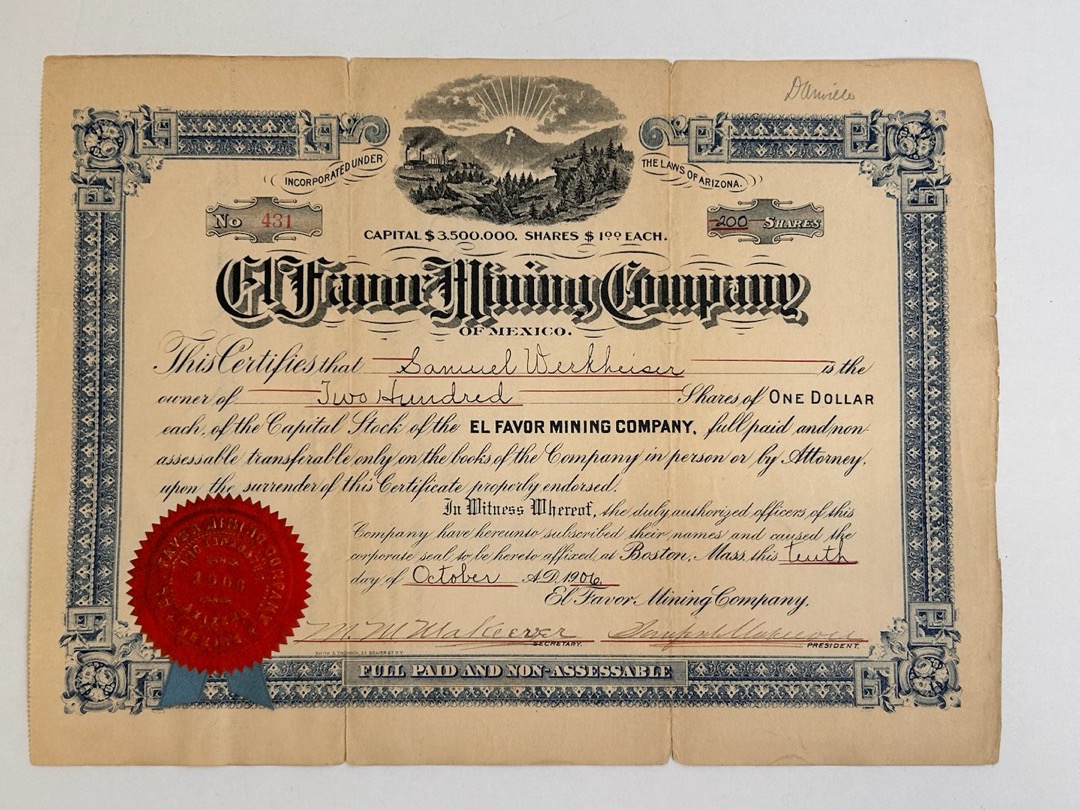 Danville
INCORPORATED UNDER THE LAWS OF ARIZONA.
No 431
200 SHARES
CAPITAL $3.500.000. SHARES $1.00 EACH.
El Favor Mining Company
OF MEXICO.
This Certifies that Samuel Werkheiser is the
owner of Two Hundred Shares of ONE DOLLAR
each, of the Capital Stock of the EL FAVOR MINING COMPANY, full paid and non
assessable transferable only on the books of the Company in person or by Attorney,
upon the surrender of this Certificate properly endorsed.
In Witness Whereof, the duly authorized officers of this
Company have hereunto subscribed their names and caused the
corporate seal to be hereto affixed at Boston, Mass. this tenth
day of October A.D. 1906
El Favor Mining Company,
SECRETARY.
PRESIDENT.
FULL PAID AND NON-ASSESSABLE